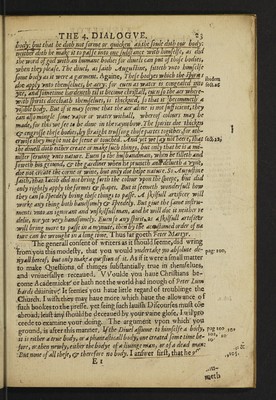 THE 4. DIALOGVE. 23
body: but that he doth not forme or quicken as the soule doth our body:
neither doth he make it to passe into one substance with himselfe, as did
the word of god with an humane bodye: for diuels can put of those bodies,
when they please. The diuel, as saith Augustine, fitteth vnto himselfe
some body as it were a garment. Againe, Those bodyes which the spirits
doe apply vnto themselues, be ayry. for euen as water is congealed into
yce, and sometimes hardeneth til it become christall, euen so the ayr wher-
with spirits doe cloath themselues, is thickned, so that it becommeth a
visible body. But if it may seeme that the ayr alone is not sufficient, they
can also mingle some vapor or water withall, wherof colours may be
made, for this we see to be done in the raynebow. The spirits doe thicken
& engrosse these bodyes, by straight trussing these partes together. for oth-
erwise they might not be seene or touched. And yet we say not heere, that
the diuell doth either create or make such things, but only that he is a mi-
nister seruing vnto nature. Euen so the husbandman, when he tilleth and
soweth his ground, & the gardiner when he pruneth & dibbeth a vyne,
doe not create the corne or wine, but only doe helpe nature. So Augustine
sayth, that Iacob did not bring forth the colour vpon the sheepe, but did
only rightly apply the formes & shapes. But it semeth wonderfull how
they can so speedely bring these things to passe. A skilfull artificer will
worke any thing both handsomly & spedely. But giue the same instru-
ments vnto an ignorant and vnskilfull man, and he will doe it neither so
soone, nor yet very handsomely. Euen so any spirit, as a skilfull artificer
will bring more to passe in a moment, then by the accustomed order of na-
ture can be wrought in a long time. Thus far goeth Peter Martyr.
The generall consent of writers as it should seeme, did wring
from you this modesty, that you would vndertake no absolute de-
nyall hereof, but only make a question of it. As if it were a small matter
to make Questions of thinges substantially true in themselues,
and vniuersallye receaued. VVoulde you haue Christians be-
come Academicks? or hath not the world had inough of Peter Lom
bards diuinitye? It seemes you haue little regard of troublinge the
Church. I wish they may haue more which haue the allowance of
such bookes to the presse. yet seing such lauish Discourses must ose
abroad; least any should be deceaued by your vaine glose, I wil pro
ceede to examine your doing. The argument vpon which you
ground, is after this manner. If the Diuel assume to himselfe a body,
it is either a true body, or a phantasticall body, eyther created some time be-
fore, or then newly, either the bodye of a liuing man, or of a dead man:
But none of all these, & therefore no body. I answer first, that he
E 1 neth